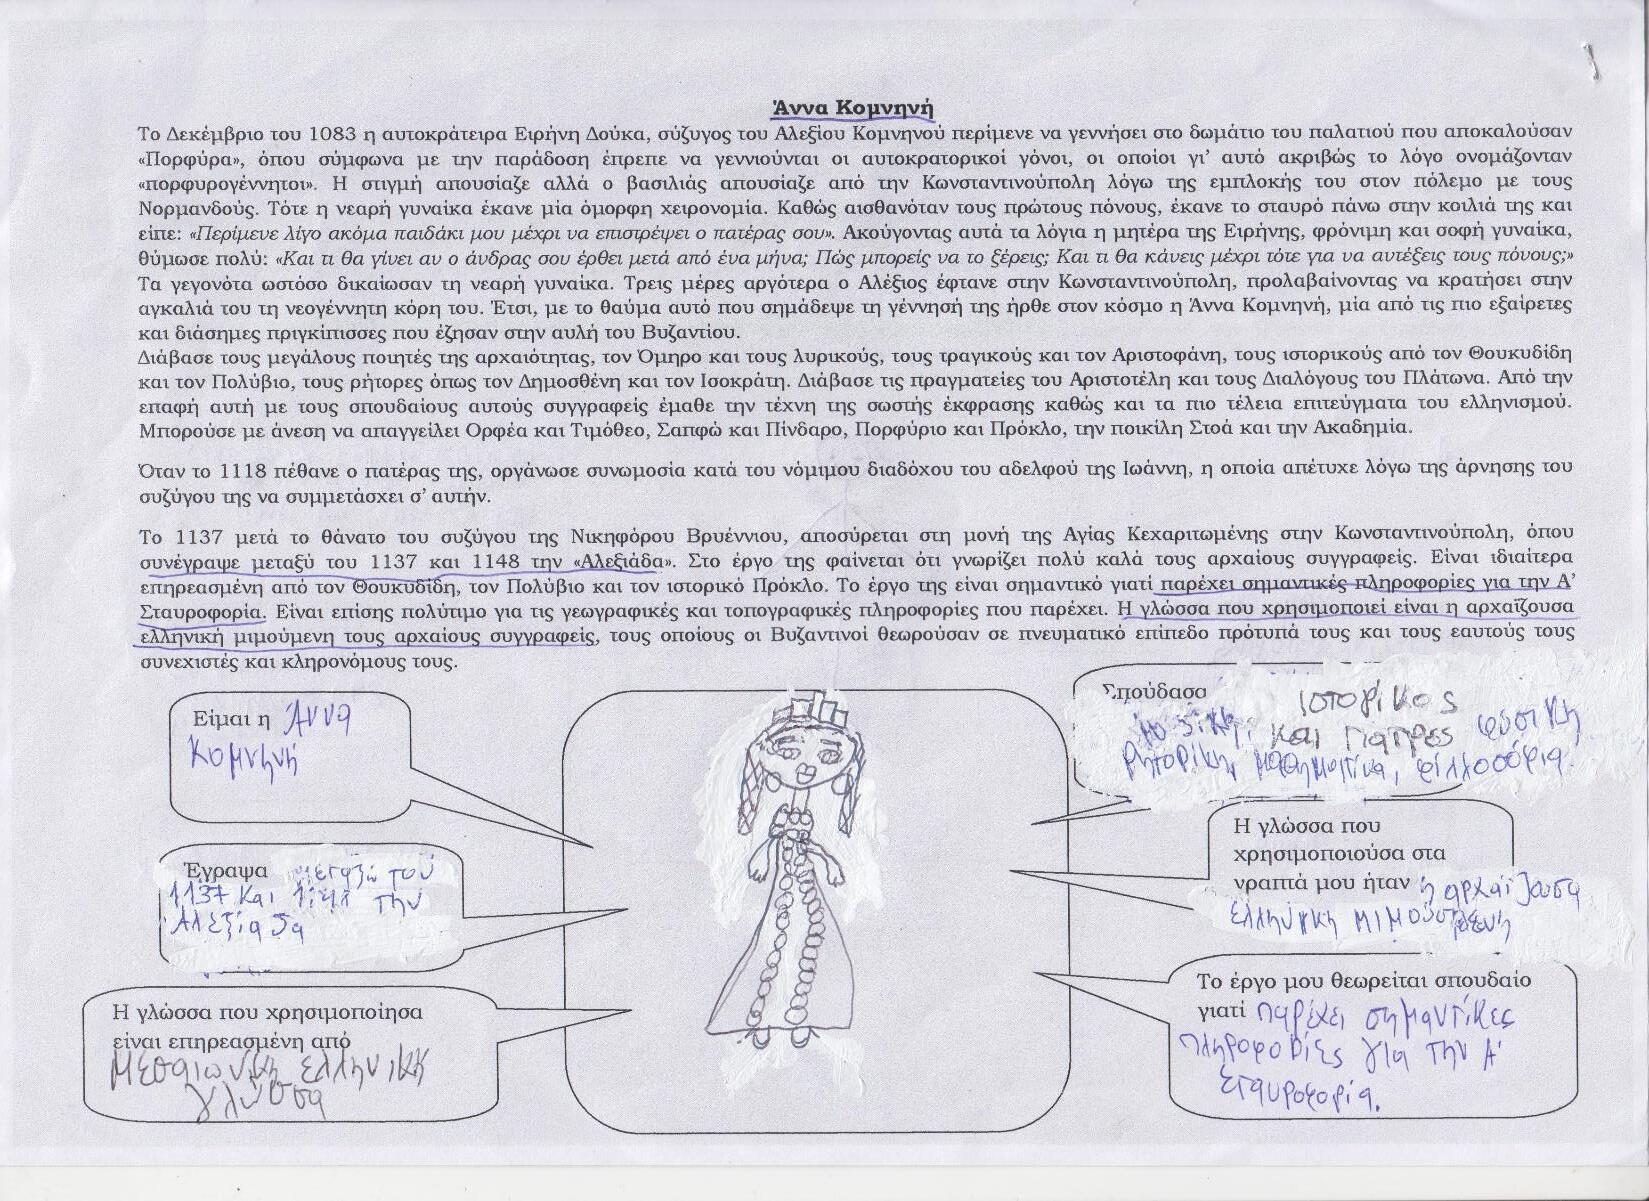 Άννα Κομνηνή
Το Δεκέμβριο του 1083 η αυτοκράτειρα Ειρήνη Δούκα, σύζυγος του Αλεξίου Κομνηνού περίμενε να γεννήσει στο δωμάτιο του παλατιού που αποκαλούσαν
«Πορφύρα», όπου σύμφωνα με την παράδοση έπρεπε να γεννιούνται οι αυτοκρατορικοί γόνοι, οι οποίοι γι' αυτό ακριβώς το λόγο ονομάζονταν
«πορφυρογέννητοι». Η στιγμή απουσίαζε αλλά ο βασιλιάς απουσίαζε από την Κωνσταντινούπολη λόγω της εμπλοκής του στον πόλεμο με τους
Νορμανδούς. Τότε η νεαρή γυναίκα έκανε μία όμορφη χειρονομία. Καθώς αισθανόταν τους πρώτους πόνους, έκανε το σταυρό πάνω στην κοιλιά της και
είπε: «Περίμενε λίγο ακόμα παιδάκι μου μέχρι να επιστρέψει ο πατέρας σου». Ακούγοντας αυτά τα λόγια η μητέρα της Ειρήνης, φρόνιμη και σοφή γυναίκα,
θύμωσε πολύ: «Και τι θα γίνει αν ο άνδρας σου έρθει μετά από ένα μήνα; Πώς μπορείς να το ξέρεις; Και τι θα κάνεις μέχρι τότε για να αντέξεις τους πόνους;»
Τα γεγονότα ωστόσο δικαίωσαν τη νεαρή γυναίκα. Τρεις μέρες αργότερα ο Αλέξιος έφτανε στην Κωνσταντινούπολη, προλαβαίνοντας να κρατήσει στην
αγκαλιά του τη νεογέννητη κόρη του. Έτσι, με το θαύμα αυτό που σημάδεψε τη γέννησή της ήρθε στον κόσμο η Άννα Κομνηνή, μία από τις πιο εξαίρετες
και διάσημες πριγκίπισσες που έζησαν στην αυλή του Βυζαντίου.
Διάβασε τους μεγάλους ποιητές της αρχαιότητας, τον Όμηρο και τους λυρικούς, τους τραγικούς και τον Αριστοφάνη, τους ιστορικούς από τον Θουκυδίδη
και τον Πολύβιο, τους ρήτορες όπως τον Δημοσθένη και τον Ισοκράτη. Διάβασε τις πραγματείες του Αριστοτέλη και τους Διαλόγους του Πλάτωνα. Από την
επαφή αυτή με τους σπουδαίους αυτούς συγγραφείς έμαθε την τέχνη της σωστής έκφρασης καθώς και τα πιο τέλεια επιτεύγματα του ελληνισμού.
Μπορούσε με άνεση να απαγγείλει Ορφέα και Τιμόθεο, Σαπφώ και Πίνδαρο, Πορφύριο και Πρόκλο, την ποικίλη Στοά και την Ακαδημία.
Όταν το 1118 πέθανε ο πατέρας της, οργάνωσε συνωμοσία κατά του νόμιμου διαδόχου του αδελφού της Ιωάννη, η οποία απέτυχε λόγω της άρνησης του
συζύγου της να συμμετάσχει σ' αυτήν.
Το 1137 μετά το θάνατο του συζύγου της Νικηφόρου Βρυέννιου, αποσύρεται στη μονή της Αγίας Κεχαριτωμένης στην Κωνσταντινούπολη, όπου
συνέγραψε μεταξύ του 1137 και 1148 την «Αλεξιάδα». Στο έργο της φαίνεται ότι γνωρίζει πολύ καλά τους αρχαίους συγγραφείς. Είναι ιδιαίτερα
επηρεασμένη από τον Θουκυδίδη, τον Πολύβιο και τον ιστορικό Πρόκλο. Το έργο της είναι σημαντικό γιατί παρέχει σημαντικές πληροφορίες για την Α'
Σταυροφορία. Είναι επίσης πολύτιμο για τις γεωγραφικές και τοπογραφικές πληροφορίες που παρέχει. Η γλώσσα που χρησιμοποιεί είναι η αρχαΐζουσα
ελληνική μιμούμενη τους αρχαίους συγγραφείς, τους οποίους οι Βυζαντινοί θεωρούσαν σε πνευματικό επίπεδο πρότυπά τους και τους εαυτούς τους
συνεχιστές και κληρονόμους τους.
Είμαι η Άννα
Κομνηνή
Έγραψα μεταξύ του
1137 και την
Αλεξίαδα
Η γλώσσα που χρησιμοποίησα
είναι επηρεασμένη από
Μεσαιωνικη ελληνικη
γλώσσα
Σπούδασα ιστορικος
και γιατρες φυσικη
Ρητορικη, μαθηματικα, φιλλοσόφια.
Η γλώσσα που
χρησιμοποιούσα στα
γραπτά μου ήταν η αρχαίζουσα
ελληνικη
Το έργο μου θεωρείται σπουδαίο
γιατί παρέχει σημαντίκες
πληροφορίες για την Α'
Σταυροφορία.